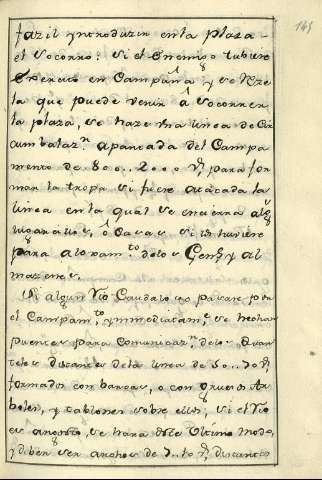 145
fazil yntroduzir en la plaza
el Socorro: si el Enemigo tubiere
Exercito en Campaña, y se reze
la que puede venir â Socorrer
la plaza, se haze una linea de Cir
cumbalaz.n apartada del Campa
mento de 800..2000 para for
mar la tropa si fuere atacada la
linea en la qual se encierra alg.s
lugarcitos, ô Casas si los huviere
para aloxam.to delos y al
mazenes.
Si algun Rio Caudaloso pasare por
el Campam.to, ymmediatam.te se echan
puentes para Comunicaz.n delos quar
teles distantes dela linea de 50..70
formados con barcas, o con gruesos Ar
boles, y tablones sobre ellos, si el Rio
es angosto, se hara deste Ultimo modo,
y deben ser anchos de distantes